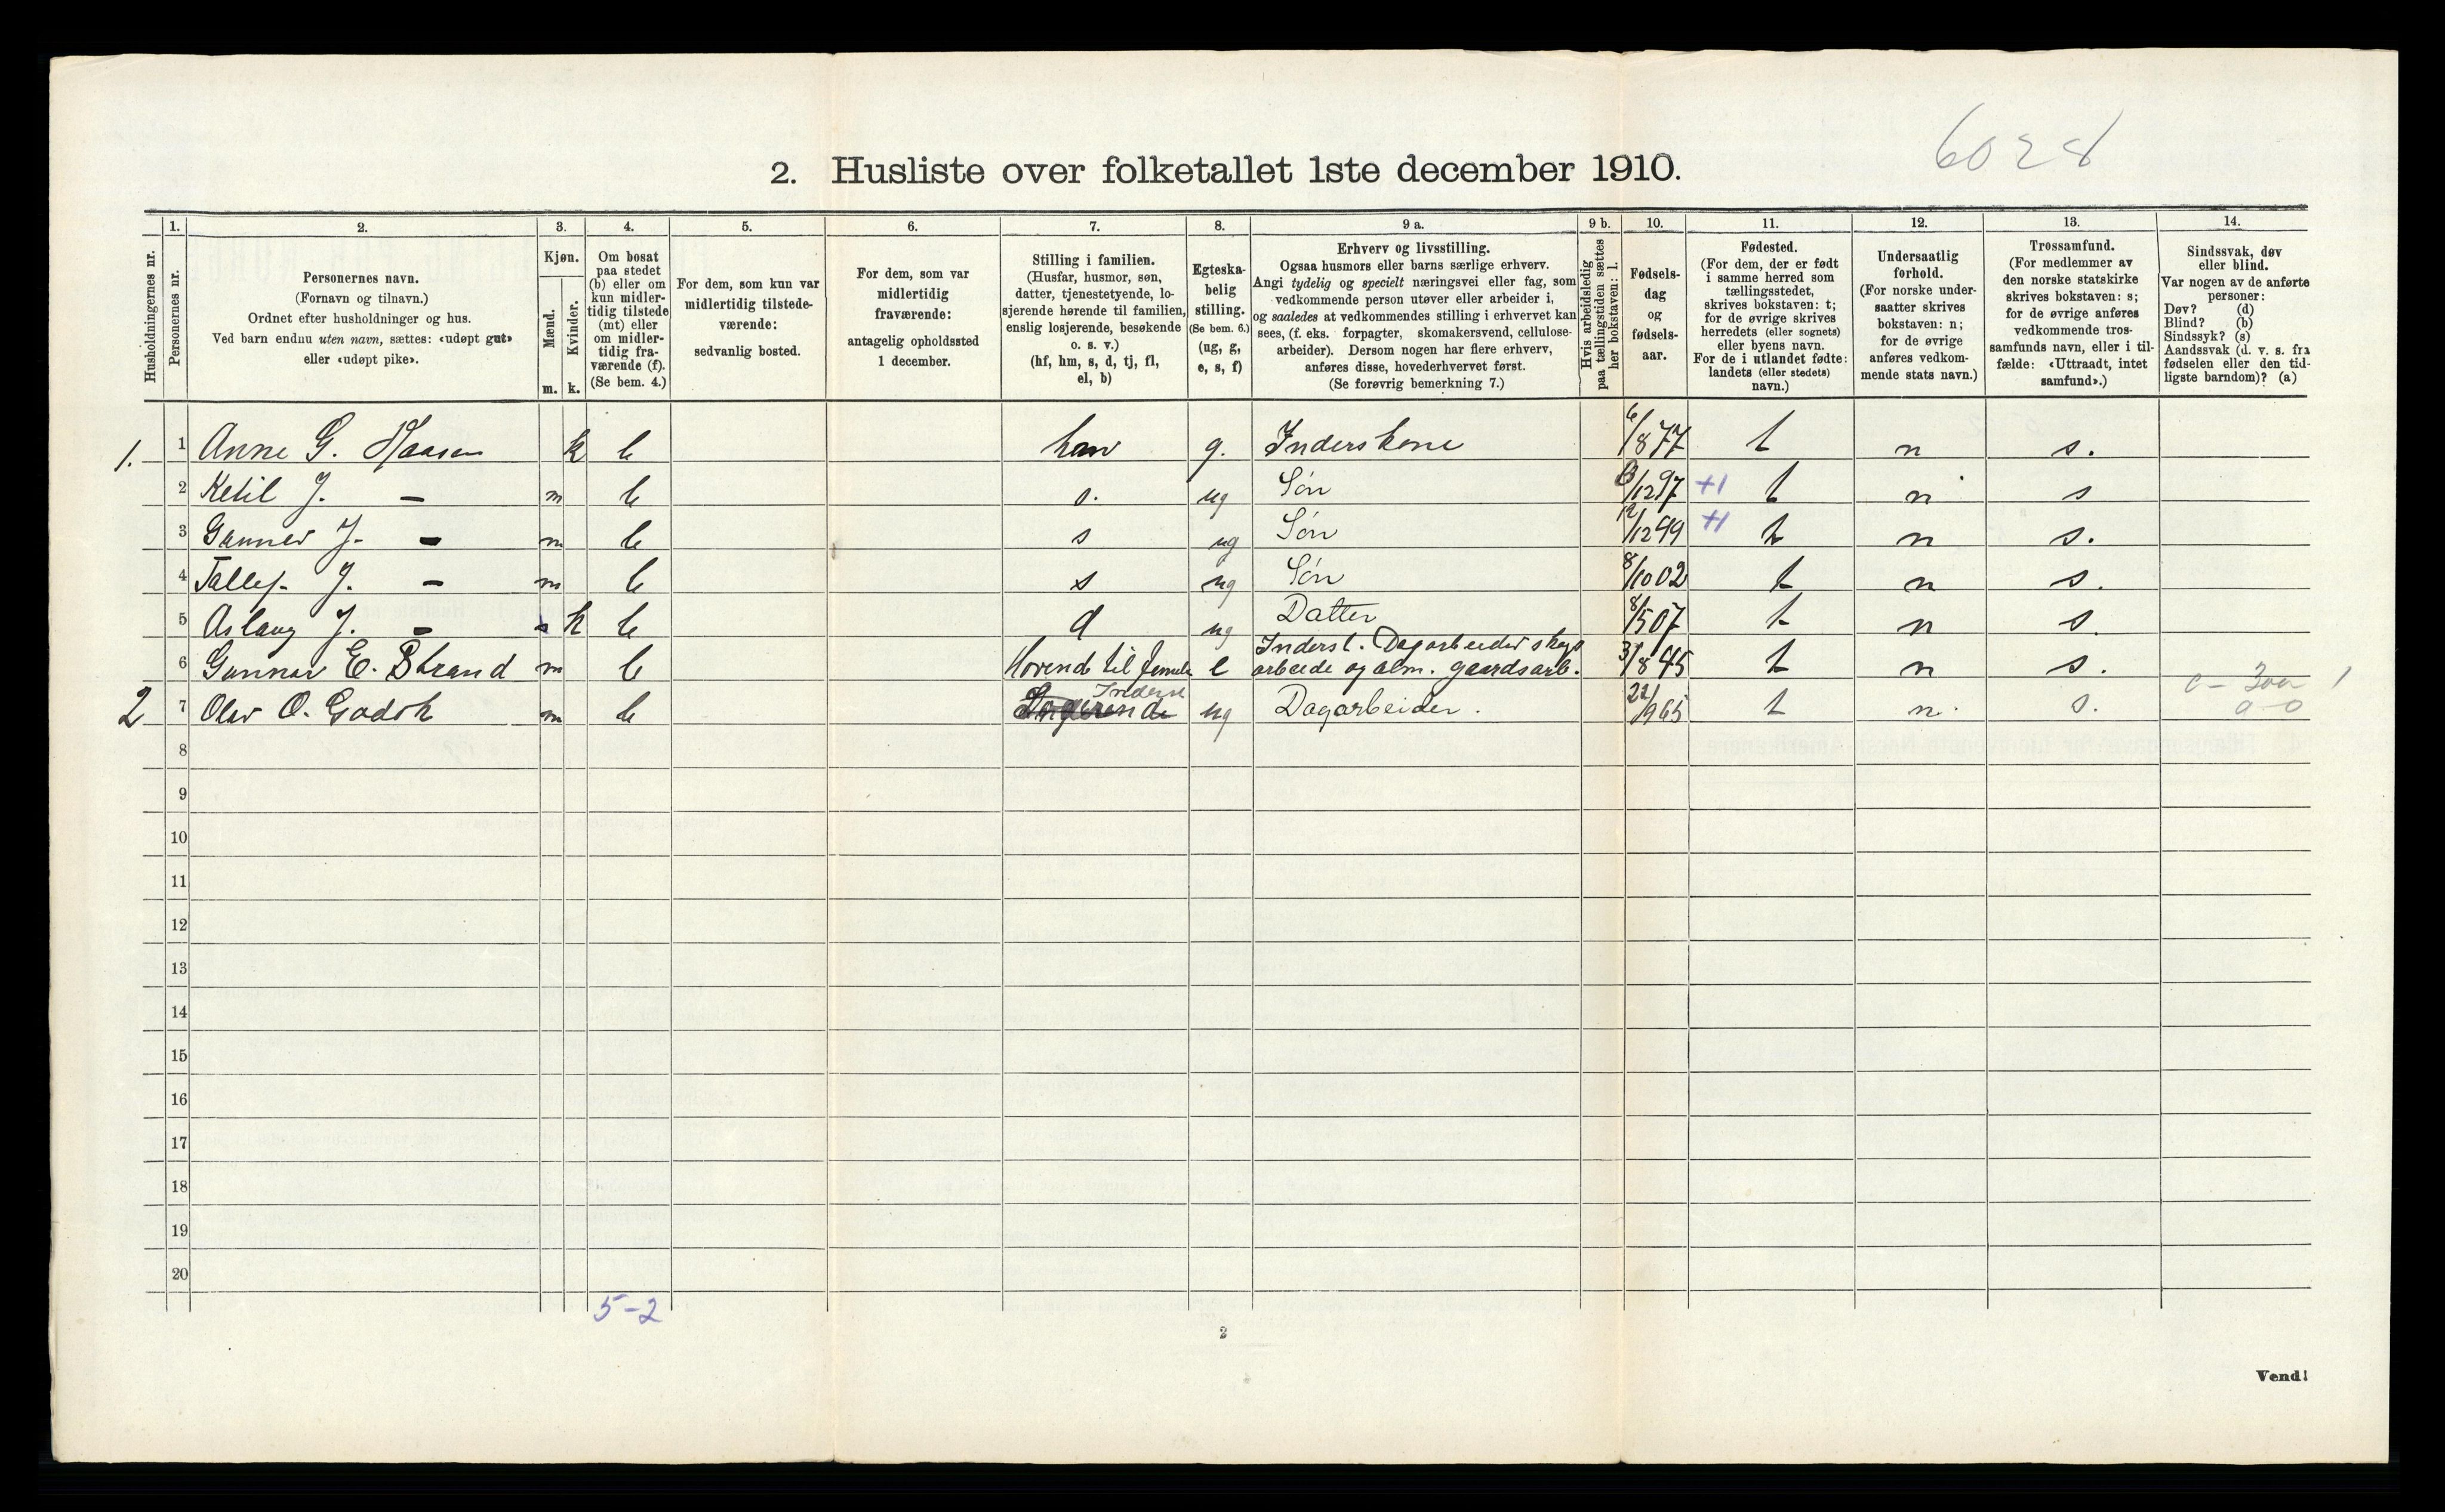 6028
2. Husliste over folketallet 1ste december 1910.
Husholdningernes nr.
1.
Personernes nr.
2.
Personernes navn.
(Fornavn og tilnavn.)
Ordnet efter husholdninger og hus.
Ved barn endnu uten navn, sættes: «udøpt gut»
eller «udøpt pike».
3.
Kjøn.
Mænd.
Kvinder.
m. k.
4.
Om bosat
paa stedet
(b) eller om
kun midler-
tidig tilstede
(mt) eller
om midler-
tidig fra-
værende (f).
(Se bem. 4.)
5.
For dem, som kun var
midlertidig tilstede-
værende:
sedvanlig bosted.
6.
For dem, som var
midlertidig
fraværende:
antagelig opholdssted
1 december.
7.
Stilling i familien.
(Husfar, husmor, søn,
datter, tjenestetyende, lo-
sjerende hørende til familien,
enslig losjerende, besøkende
o. s. v.)
(hf, hm, s, d, tj, fl,
el, b)
8.
Egteska-
belig
stilling.
(Se bem. 6.)
(ug, g,
e, s, f)
9 a.
Erhverv og livsstilling.
Ogsaa husmors eller barns særlige erhverv.
Angi tydelig og specielt næringsvei eller fag, som
vedkommende person utøver eller arbeider i,
og saaledes at vedkommendes stilling i erhvervet kan
sees, (f. eks. forpagter, skomakersvend, cellulose-
arbeider). Dersom nogen har flere erhverv,
anføres disse, hovederhvervet først.
(Se forøvrig bemerkning 7.)
9 b.
Hvis arbeidsledig
paa tællingstiden sættes
her bokstaven: l.
10.
Fødsels-
dag
og
fødsels-
aar.
11.
Fødested.
(For dem, der er født
i samme herred som
tællingsstedet,
skrives bokstaven: t;
for de øvrige skrives
herredets (eller sognets)
eller byens navn.
For de i utlandet fødte:
landets (eller stedets)
navn.)
12.
Undersaatlig
forhold.
(For norske under-
saatter skrives
bokstaven: n;
for de øvrige
anføres vedkom-
mende stats navn.)
13.
Trossamfund.
(For medlemmer av
den norske statskirke
skrives bokstaven: s;
for de øvrige anføres
vedkommende tros-
samfunds navn, eller i til-
fælde: «Uttraadt, intet
samfund».)
14.
Sindssvak, døv
eller blind.
Var nogen av de anførte
personer:
Døv? (d)
Blind? (b)
Sindssyk? (s)
Aandssvak (d. v. s. fra
fødselen eller den tid-
ligste barndom)? (a)
1. 1 Anne G. Haasen k b hm g. Inderskone 6/8 77 t n s.
2 Ketil J. — m b s. ug Søn 13/12 97 +1 t n s
3 Gunner J. — m b s ug Søn 12/12 99 +1 t n s.
4 Tallef J. — m b s ug Søn 8/10 02 t n s.
5 Aslaug J. — k b d ug Datter 8/5 07 t n s.
6 Gunnar E. Strand m b Hørende til e Inderst. Dagarbeider skogs
arbeide og alm. gaardsarb. 31/8 45 t n s.
2 7 Olav O. Godok m b Losjerende Inderst ug Dagarbeider. 22/9 65 t n. s.
0 - 300 1
0 - 0
8
9
10
11
12
13
14
15
16
17
18
19
20
5-2
2
Vend!